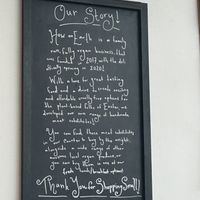 Our Story!
How on Earth is a family
run, fully vegan business that
was founded 2017 with the deli
opening in 2020!
With a love for great tasting
food and a drive to create exciting
and affordable options for
the plant-based folks of Exeter, we
developed our own range of handmade
meat substitutes!
You can find these meat substitutes
in our counter to buy by the weight,
alongside a wide range of other
local vegan produce, or
you can buy them in one of our
fresh breakfast options!
Thank You for Shopping Small!